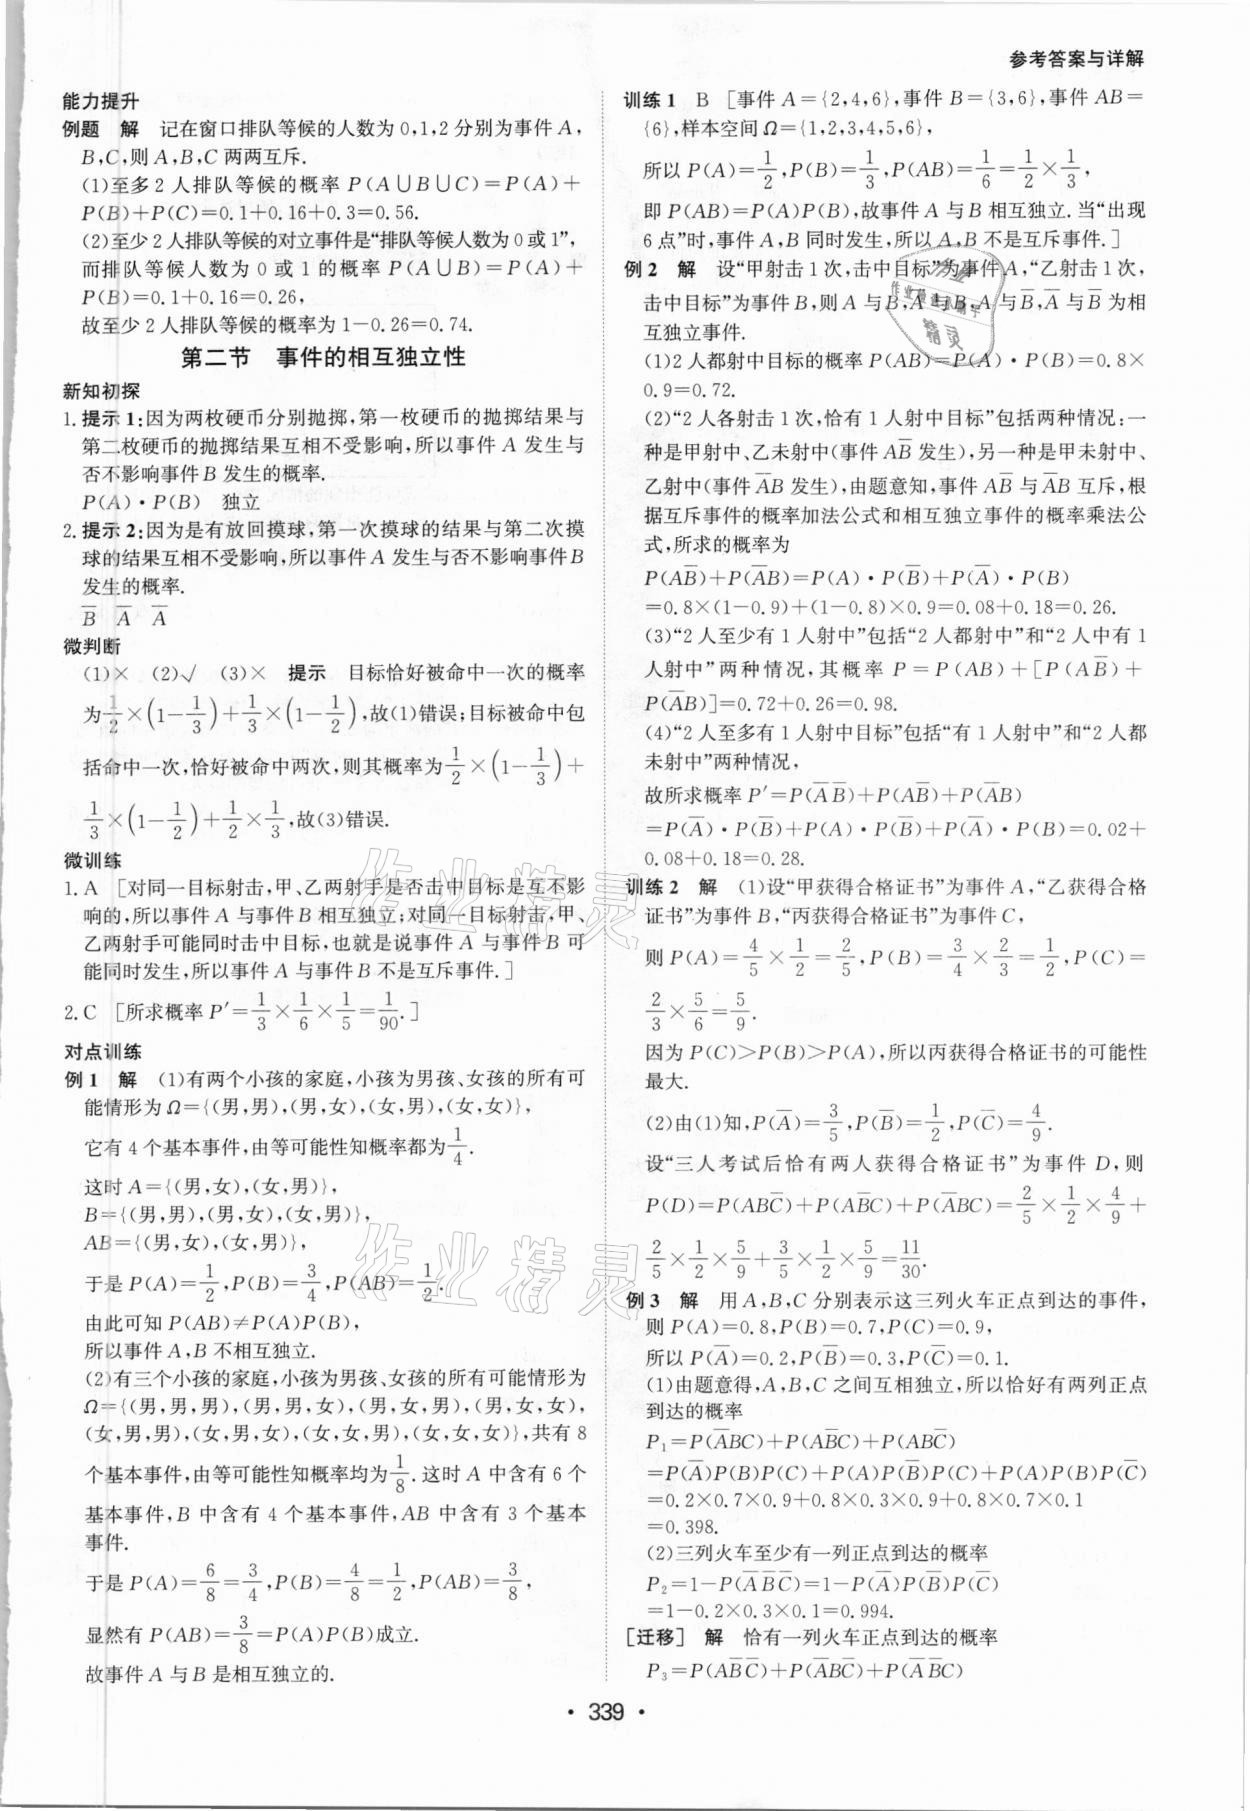 参考答案与详解
能力提升
例题 解 记在窗口排队等候的人数为0,1,2分别为事件A,
B,C,则A,B,C两两互斥.
(1)至多2人排队等候的概率P(A∪B∪C)=P(A)+
P(B)+P(C)=0.1+0.16+0.3=0.56.
(2)至少2人排队等候的对立事件是“排队等候人数为0或1”,
而排队等候人数为0或1的概率P(A∪B)=P(A)+
P(B)=0.1+0.16=0.26,
故至少2人排队等候的概率为1-0.26=0.74.
第二节 事件的相互独立性
新知初探
1.提示1:因为两枚硬币分别抛掷,第一枚硬币的抛掷结果与
第二枚硬币的抛掷结果互相不受影响,所以事件A发生与
否不影响事件B发生的概率.
P(A)·P(B) 独立
2.提示2:因为是有放回摸球,第一次摸球的结果与第二次摸
球的结果互相不受影响,所以事件A发生与否不影响事件B
发生的概率.
B̅ A̅ A̅
微判断
(1)× (2)√ (3)× 提示 目标恰好被命中一次的概率
为1/2×(1-1/3)+1/3×(1-1/2),故(1)错误;目标被命中包
括命中一次,恰好被命中两次,则其概率为1/2×(1-1/3)+
1/3×(1-1/2)+1/2×1/3,故(3)错误.
微训练
1.A [对同一目标射击,甲、乙两射手是否击中目标是互不影
响的,所以事件A与事件B相互独立;对同一目标射击,甲、
乙两射手可能同时击中目标,也就是说事件A与事件B可
能同时发生,所以事件A与事件B不是互斥事件.]
2.C [所求概率P′=1/3×1/6×1/5=1/90.]
对点训练
例1 解 (1)有两个小孩的家庭,小孩为男孩、女孩的所有可
能情形为Ω={(男,男),(男,女),(女,男),(女,女)},
它有4个基本事件,由等可能性知概率都为1/4.
这时A={(男,女),(女,男)},
B={(男,男),(男,女),(女,男)},
AB={(男,女),(女,男)},
于是P(A)=1/2,P(B)=3/4,P(AB)=1/2.
由此可知P(AB)≠P(A)P(B),
所以事件A,B不相互独立.
(2)有三个小孩的家庭,小孩为男孩、女孩的所有可能情形为
Ω={(男,男,男),(男,男,女),(男,女,男),(男,女,女),
(女,男,男),(女,男,女),(女,女,男),(女,女,女)},共有8
个基本事件,由等可能性知概率均为1/8.这时A中含有6个
基本事件,B中含有4个基本事件,AB中含有3个基本
事件.
于是P(A)=6/8=3/4,P(B)=4/8=1/2,P(AB)=3/8,
显然有P(AB)=3/8=P(A)P(B)成立.
故事件A与B是相互独立的.
训练1 B [事件A={2,4,6},事件B={3,6},事件AB=
{6},样本空间Ω={1,2,3,4,5,6},
所以P(A)=1/2,P(B)=1/3,P(AB)=1/6=1/2×1/3,
即P(AB)=P(A)P(B),故事件A与B相互独立.当“出现
6点”时,事件A,B同时发生,所以A,B不是互斥事件.]
例2 解 设“甲射击1次,击中目标”为事件A,“乙射击1次,
击中目标”为事件B,则A与B,A̅与B,A与B̅,A̅与B̅为相
互独立事件.
(1)2人都射中目标的概率P(AB)=P(A)·P(B)=0.8×
0.9=0.72.
(2)“2人各射击1次,恰有1人射中目标”包括两种情况:一
种是甲射中、乙未射中(事件AB̅发生),另一种是甲未射中、
乙射中(事件A̅B发生),由题意知,事件AB̅与A̅B互斥,根
据互斥事件的概率加法公式和相互独立事件的概率乘法公
式,所求的概率为
P(AB̅)+P(A̅B)=P(A)·P(B̅)+P(A̅)·P(B)
=0.8×(1-0.9)+(1-0.8)×0.9=0.08+0.18=0.26.
(3)“2人至少有1人射中”包括“2人都射中”和“2人中有1
人射中”两种情况,其概率P=P(AB)+[P(AB̅)+
P(A̅B)]=0.72+0.26=0.98.
(4)“2人至多有1人射中目标”包括“有1人射中”和“2人都
未射中”两种情况,
故所求概率P′=P(A̅ B̅)+P(AB̅)+P(A̅B)
=P(A̅)·P(B̅)+P(A)·P(B̅)+P(A̅)·P(B)=0.02+
0.08+0.18=0.28.
训练2 解 (1)设“甲获得合格证书”为事件A,“乙获得合格
证书”为事件B,“丙获得合格证书”为事件C,
则P(A)=4/5×1/2=2/5,P(B)=3/4×2/3=1/2,P(C)=
2/3×5/6=5/9.
因为P(C)>P(B)>P(A),所以丙获得合格证书的可能性
最大.
(2)由(1)知,P(A̅)=3/5,P(B̅)=1/2,P(C̅)=4/9.
设“三人考试后恰有两人获得合格证书”为事件D,则
P(D)=P(ABC̅)+P(AB̅C)+P(A̅BC)=2/5×1/2×4/9+
2/5×1/2×5/9+3/5×1/2×5/9=11/30.
例3 解 用A,B,C分别表示这三列火车正点到达的事件,
则P(A)=0.8,P(B)=0.7,P(C)=0.9,
所以P(A̅)=0.2,P(B̅)=0.3,P(C̅)=0.1.
(1)由题意得,A,B,C之间互相独立,所以恰好有两列正点
到达的概率
P₁=P(A̅BC)+P(AB̅C)+P(ABC̅)
=P(A̅)P(B)P(C)+P(A)P(B̅)P(C)+P(A)P(B)P(C̅)
=0.2×0.7×0.9+0.8×0.3×0.9+0.8×0.7×0.1
=0.398.
(2)三列火车至少有一列正点到达的概率
P₂=1-P(A̅ B̅ C̅)=1-P(A̅)P(B̅)P(C̅)
=1-0.2×0.3×0.1=0.994.
[迁移] 解 恰有一列火车正点到达的概率
P₃=P(AB̅ C̅)+P(A̅BC̅)+P(A̅ B̅C)
·339·
作业精灵
作业精灵